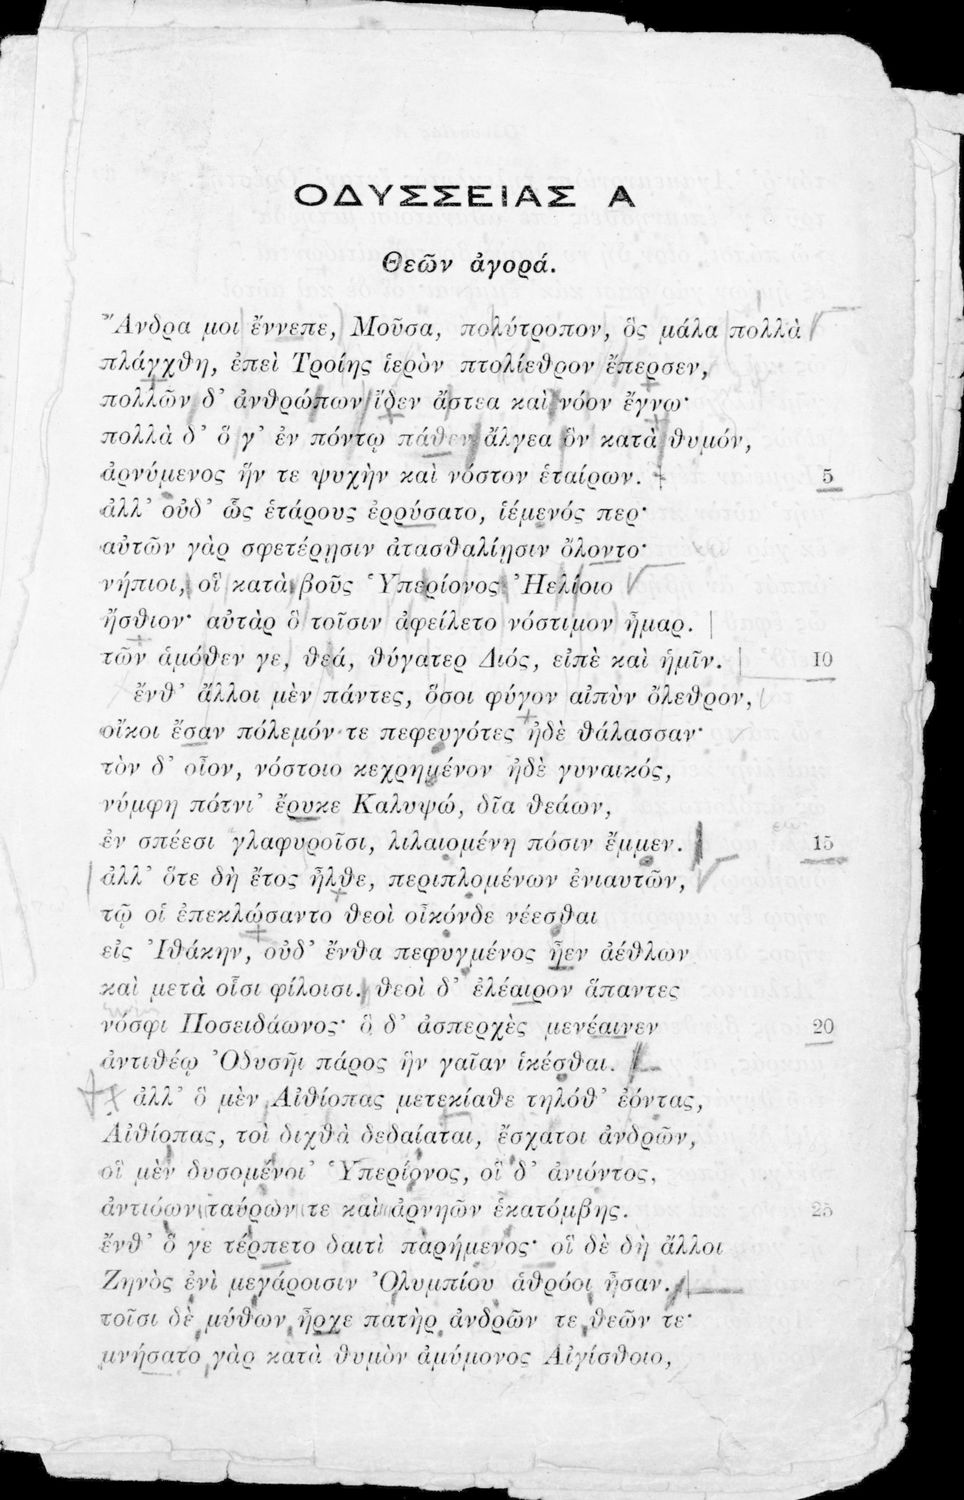 ΟΔΥΣΣΕΙΑΣ Α
Θεῶν ἀγορά.
Ἄνδρα μοι ἔννεπε, Μοῦσα, πολύτροπον, ὃς μάλα πολλὰ
πλάγχθη, ἐπεὶ Τροίης ἱερὸν πτολίεθρον ἔπερσεν,
πολλῶν δ' ἀνθρώπων ἴδεν ἄστεα καὶ νόον ἔγνω·
πολλὰ δ' ὅ γ' ἐν πόντῳ πάθεν ἄλγεα ὃν κατὰ θυμόν,
ἀρνύμενος ἥν τε ψυχὴν καὶ νόστον ἑταίρων. 5
ἀλλ' οὐδ' ὧς ἑτάρους ἐρρύσατο, ἱέμενός περ·
αὐτῶν γὰρ σφετέρῃσιν ἀτασθαλίῃσιν ὄλοντο·
νήπιοι, οἳ κατὰ βοῦς Ὑπερίονος Ἠελίοιο
ἤσθιον· αὐτὰρ ὃ τοῖσιν ἀφείλετο νόστιμον ἦμαρ.
τῶν ἁμόθεν γε, θεά, θύγατερ Διός, εἰπὲ καὶ ἡμῖν. 10
ἔνθ' ἄλλοι μὲν πάντες, ὅσοι φύγον αἰπὺν ὄλεθρον,
οἴκοι ἔσαν πόλεμόν τε πεφευγότες ἠδὲ θάλασσαν·
τὸν δ' οἶον, νόστοιο κεχρημένον ἠδὲ γυναικός,
νύμφη πότνι' ἔρυκε Καλυψώ, δῖα θεάων,
ἐν σπέεσι γλαφυροῖσι, λιλαιομένη πόσιν ἔμμεν. 15
ἀλλ' ὅτε δὴ ἔτος ἦλθε, περιπλομένων ἐνιαυτῶν,
τῷ οἱ ἐπεκλώσαντο θεοὶ οἶκόνδε νέεσθαι
εἰς Ἰθάκην, οὐδ' ἔνθα πεφυγμένος ἦεν ἀέθλων
καὶ μετὰ οἷσι φίλοισι. θεοὶ δ' ἐλέαιρον ἅπαντες
νόσφι Ποσειδάωνος· ὃ δ' ἀσπερχὲς μενέαινεν 20
ἀντιθέῳ Ὀδυσῆι πάρος ἣν γαῖαν ἱκέσθαι.
ἀλλ' ὃ μὲν Αἰθίοπας μετεκίαθε τηλόθ' ἐόντας,
Αἰθίοπας, τοὶ διχθὰ δεδαίαται, ἔσχατοι ἀνδρῶν,
οἳ μὲν δυσομένοι' Ὑπερίονος, οἳ δ' ἀνιόντος,
ἀντιόων ταύρων τε καὶ ἀρνηῶν ἑκατόμβης. 25
ἔνθ' ὅ γε τέρπετο δαιτὶ παρήμενος· οἳ δὲ δὴ ἄλλοι
Ζηνὸς ἐνὶ μεγάροισιν Ὀλυμπίου ἁθρόοι ἦσαν.
τοῖσι δὲ μύθων ἦρχε πατὴρ ἀνδρῶν τε θεῶν τε·
μνήσατο γὰρ κατὰ θυμὸν ἀμύμονος Αἰγίσθοιο,